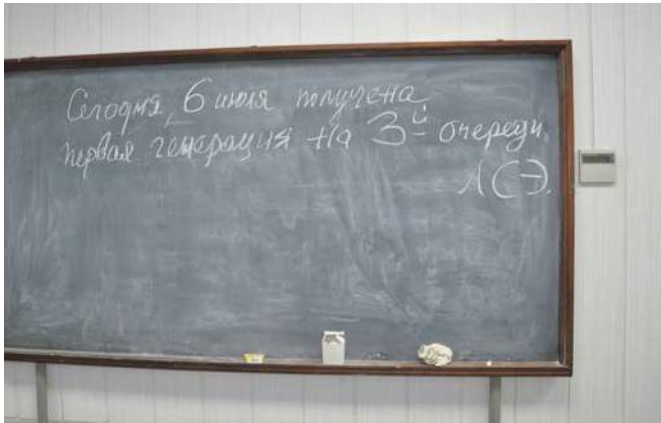 Сегодня, 6 июля получена
первая генерация на 3й очереди
ЛСЭ.